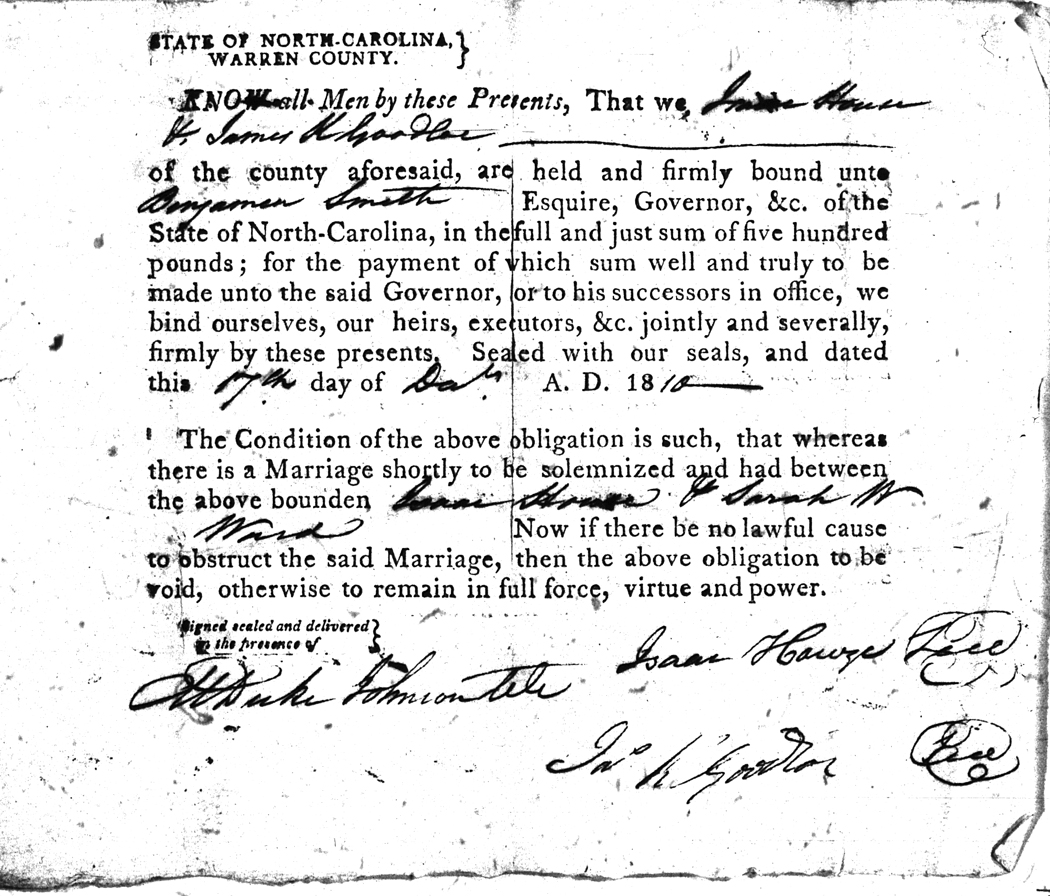 STATE OF NORTH-CAROLINA, }
WARREN COUNTY.
KNOW all Men by these Presents, That we, Isaac House
& James K Goodloe
of the county aforesaid, are held and firmly bound unto
Benjamin Smith Esquire, Governor, &c. of the
State of North-Carolina, in the full and just sum of five hundred
pounds; for the payment of which sum well and truly to be
made unto the said Governor, or to his successors in office, we
bind ourselves, our heirs, executors, &c. jointly and severally,
firmly by these presents. Sealed with our seals, and dated
this 17th day of A. D. 1810
The Condition of the above obligation is such, that whereas
there is a Marriage shortly to be solemnized and had between
the above bounden Isaac House & Sarah W
Ward Now if there be no lawful cause
to obstruct the said Marriage, then the above obligation to be
void, otherwise to remain in full force, virtue and power.
Signed sealed and delivered }
in the presence of
Isaac Howze Seal
Duke Johnson
Jas K Goodloe Seal